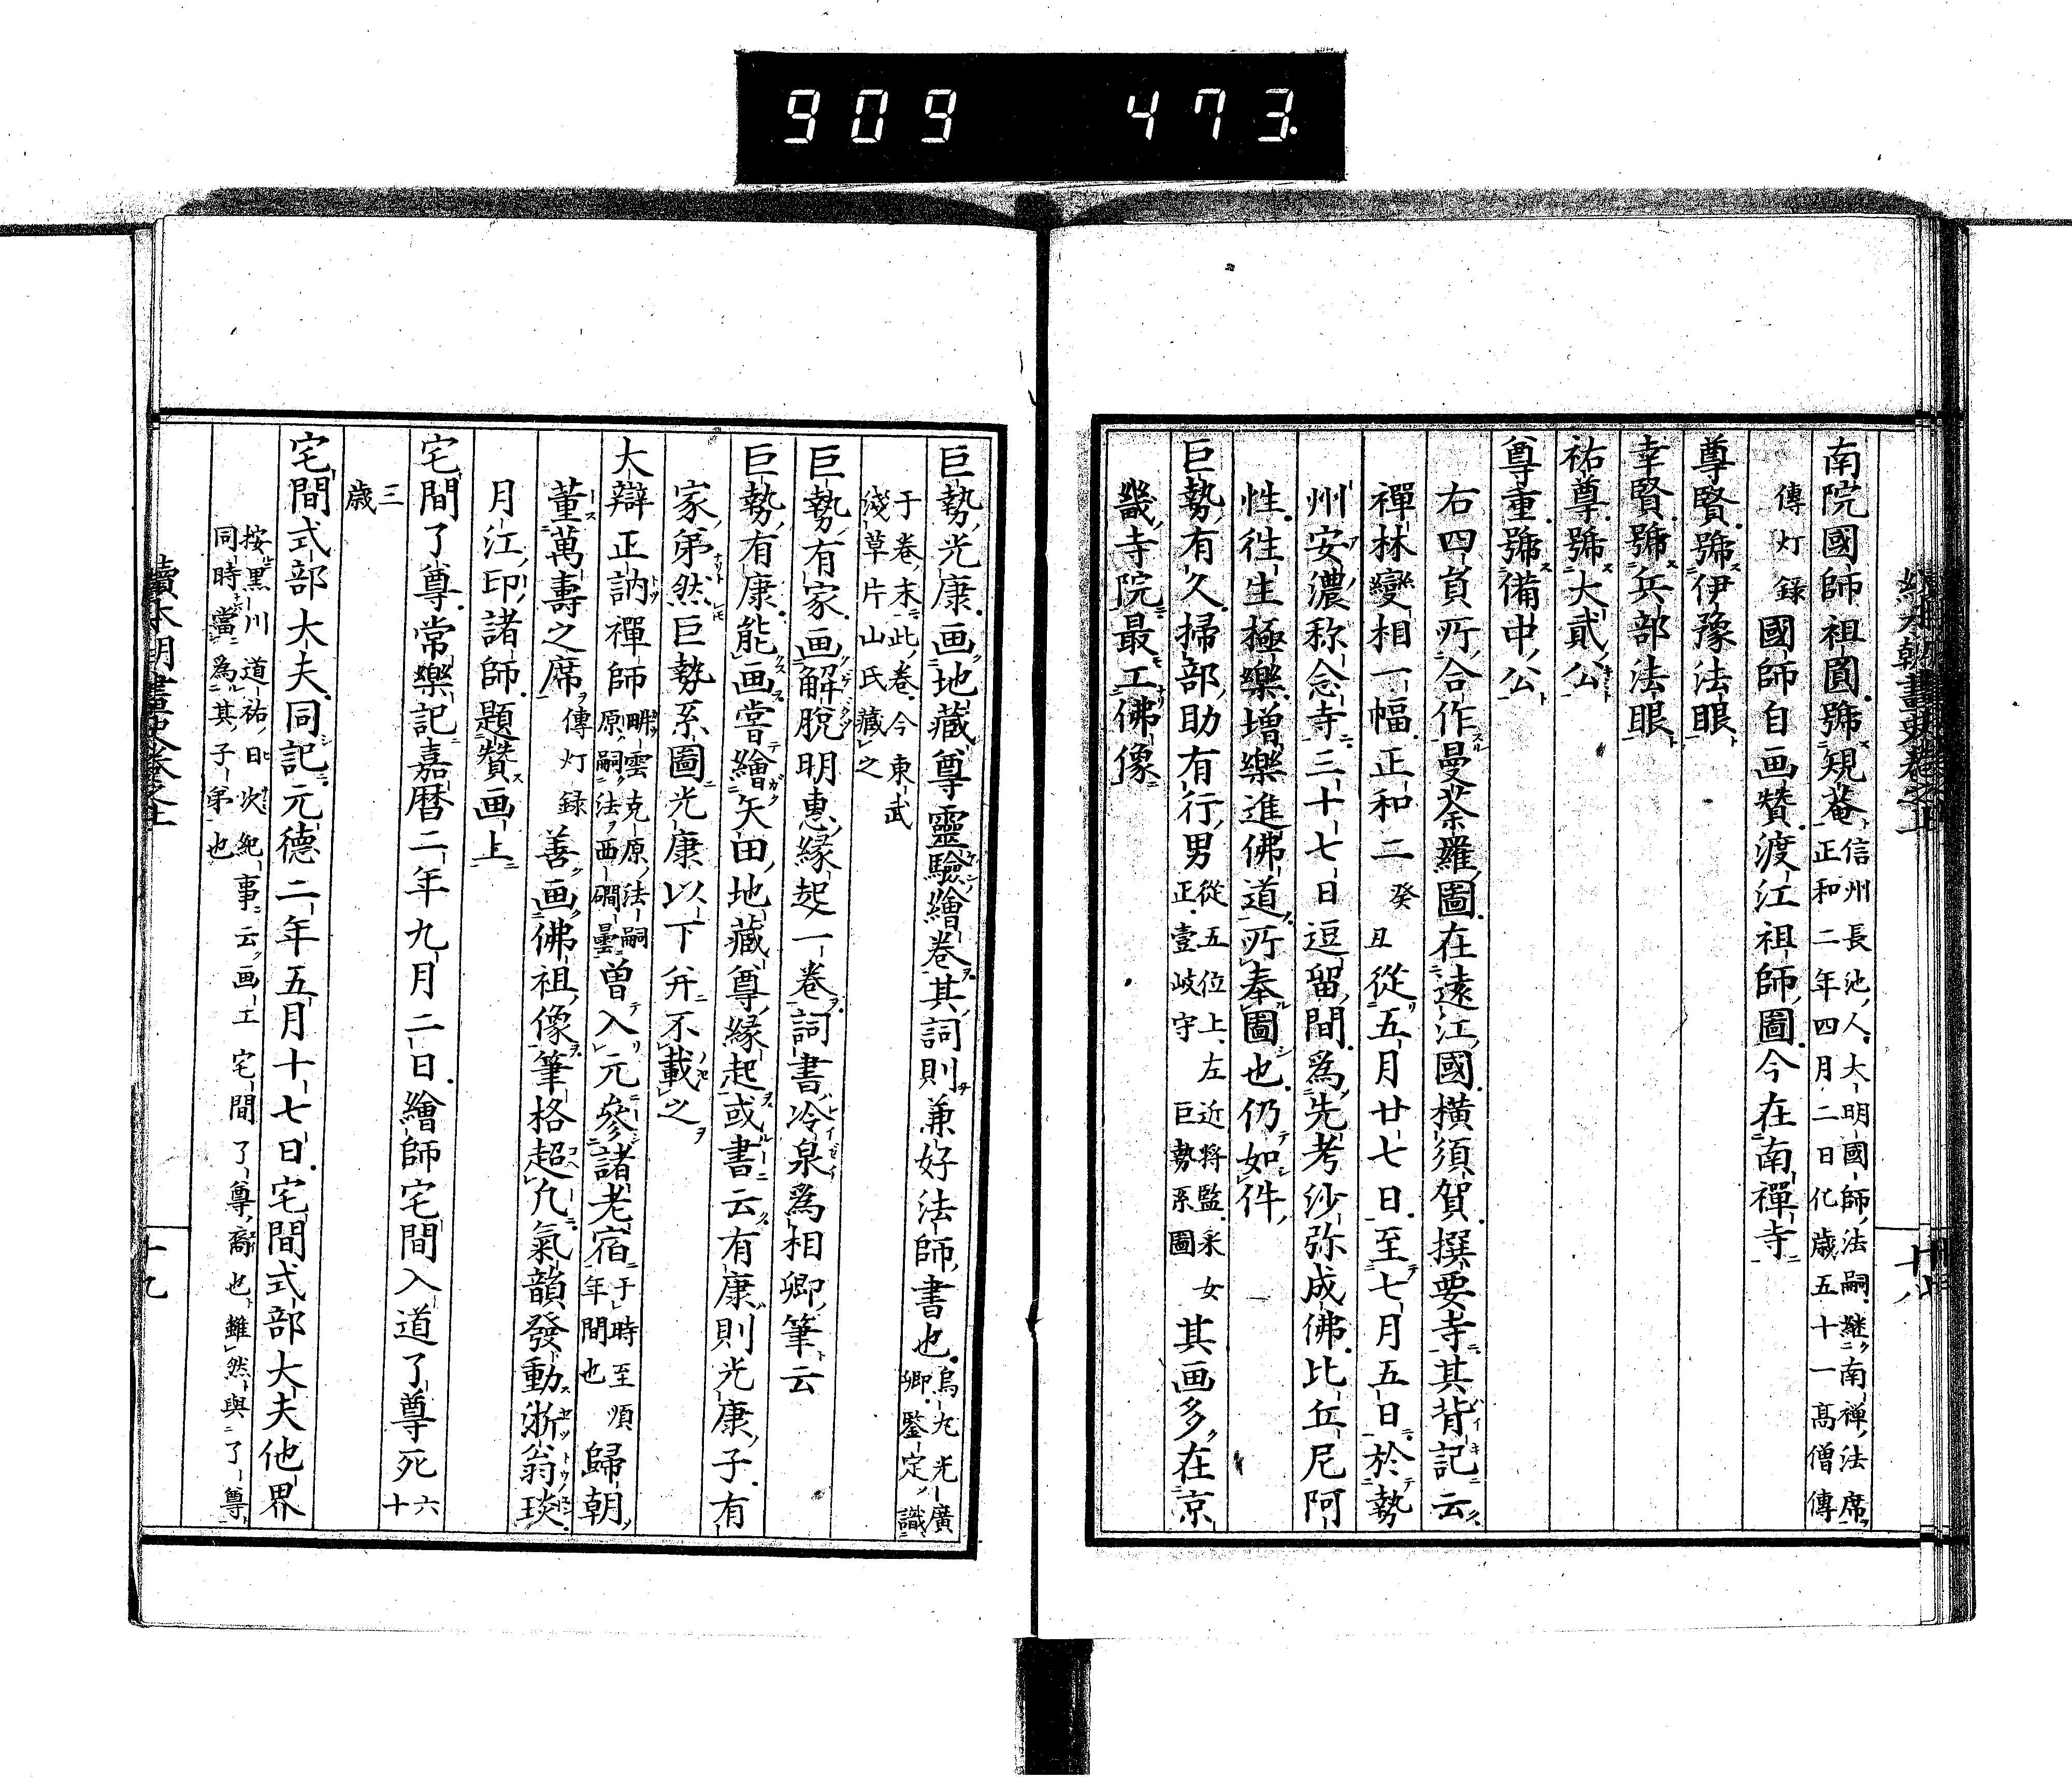 909 473.
南院國師祖圓號規菴信州長池人大明國師法嗣継南禅法席
正和二年四月二日化歳五十一高僧傳
傳灯録國師自画賛渡江祖師圖今在南禪寺
尊賢號伊豫法眼
幸賢號兵部法眼
祐尊號大貳公
尊重號備中公
右四貟所合作曼荼羅圖在遠江國横須賀撰要寺其背記云
禪林變相一幅正和二癸丑從五月廿七日至七月五日於勢
州安濃称念寺三十七日逗留間爲先考沙弥成佛比丘尼阿
性徃生極樂増樂進佛道所奉圖也仍如件
巨勢有久掃部助有行男從五位上左近将監采女
正壹岐守巨勢系圖其画多在京
畿寺院最工佛像
巨勢光康画地藏尊靈驗繪卷其詞則兼好法師書也烏丸光廣
卿鑒定識
于卷末此卷今東武
淺草片山氏藏之
巨勢有家画解脱明惠縁起一卷詞書冷泉爲相卿筆云
巨勢有康能画甞繪矢田地藏尊縁起或書云有康則光康子有
家弟然巨勢系圖光康以下弁不載之
大辯正訥禪師畊雲克原法嗣
原嗣法西磵曇曽入元參諸老宿于時至順
年間也歸朝
董萬壽之席傳灯録善画佛祖像筆格超凢氣韻發動浙翁琰
月江印諸師題贊画上
宅間了尊常樂記嘉暦二年九月二日繪師宅間入道了尊死六十
三歳
宅間式部大夫同記元德二年五月十七日宅間式部大夫他界
按黒川道祐日次紀事云画工宅間了尊裔也雖然與了尊
同時當爲其子弟也
續本朝畫史卷之上
十九